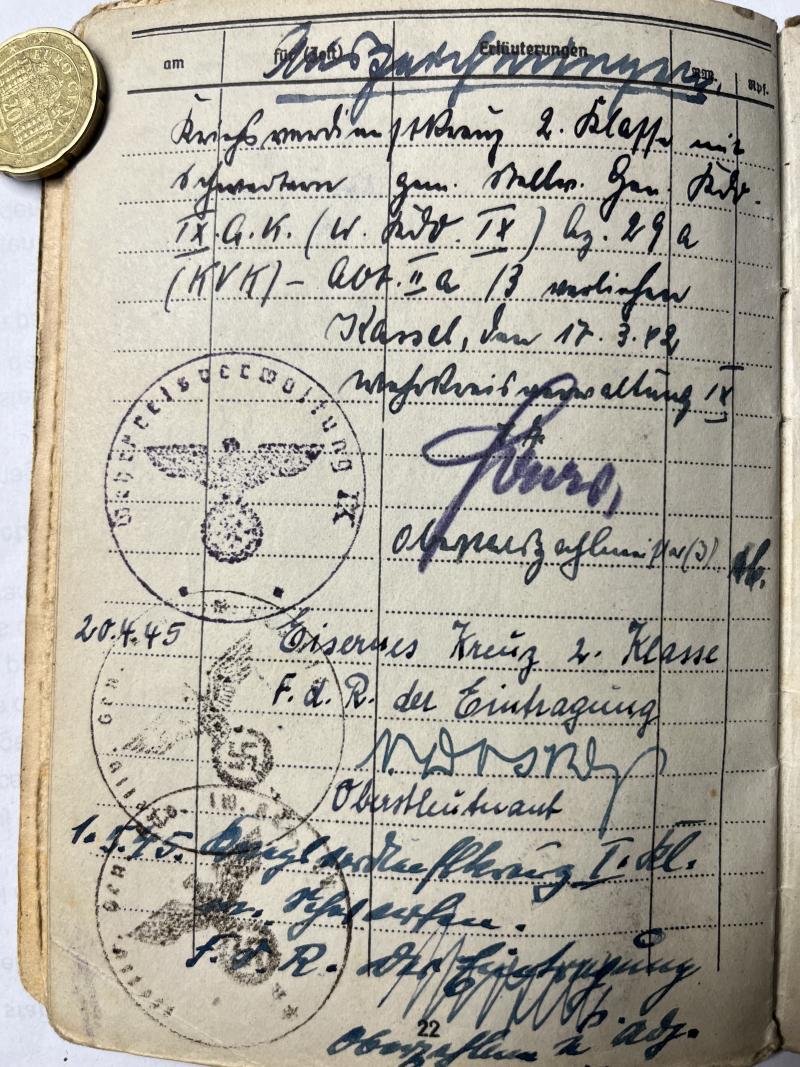 am für (Zeit) Erläuterungen RM. Rpf.
Auszeichnungen
Kriegsverdienstkreuz 2. Klasse mit
Schwertern gem. Stellv. Gen. Kdo.
IX. A.K. (W. Kdo. IX) Az. 29 a
(KVK) – Abt. II a /3 verliehen
Kassel, den 17. 3. 42
Wehrkreisverwaltung IX
Wehrkreisverwaltung IX
Oberstabszahlmeister
20.4.45 Eisernes Kreuz 2. Klasse
F. d. R. der Eintragung
Oberstleutnant
1. 5. 45. Kriegsverdienstkreuz I. Kl.
m. Schwertern.
F. d. R. der Eintragung
22
Oberzahlm. u. Adj.